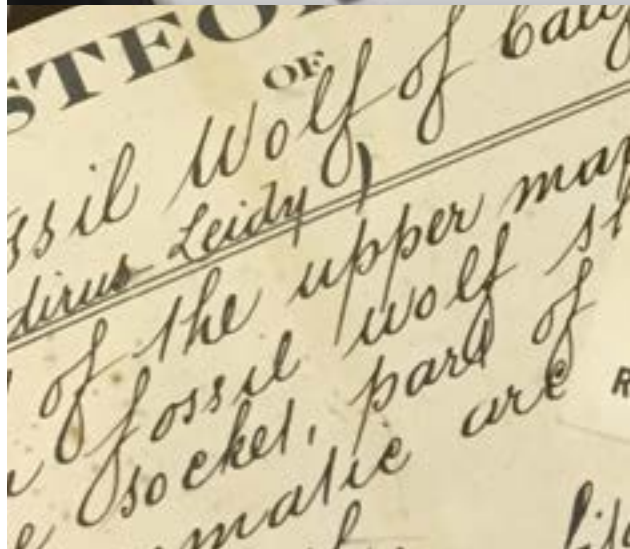 STEO
OF
ssil Wolf of Cali
dirus Leidy)
of the upper ma
fossil wolf s
socket, part of
matic arc R